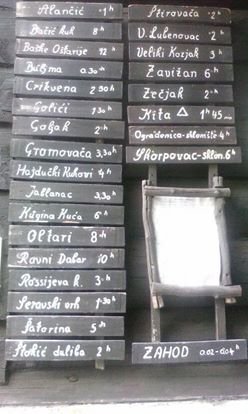 Alančić -1ʰ
Bačić kuk 8ʰ
Baške Oštarije 12ʰ
Buljma 0.30ʰ
Crikvena 2 30ʰ
Golići 1 30ʰ
Goljak 2ʰ
Gromovača 3,30ʰ
Hajdučki Kukovi 4ʰ
Jablanac 3,30ʰ
Kugina Kuća 6ʰ
Oltari 8ʰ
Ravni Dabar 10ʰ
Rossijeva k. 3ʰ
Seravski vrh 1·30ʰ
Šatorina 5ʰ
Štokić duliba 2ʰ
Štirovača -2ʰ
V. Lubenovac -2ʰ
Veliki Kozjak 3ʰ
Zavižan 6ʰ
Zečjak 2ʰ
Kita △ 1ʰ45m
Ogradenica-sklonište 4ʰ
Skorpovac-sklon. 6ʰ
ZAHOD 0.02-0.04ʰ